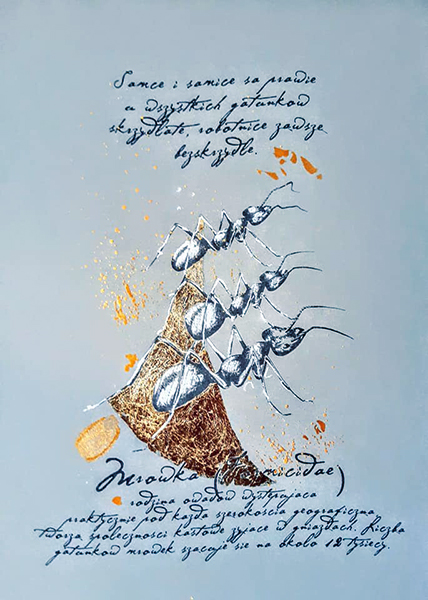 Samce i samice sa prawie
u wszystkich gatunkow
skrzydlate, robotnice zawsze
bezskrzydle.
Mrowka (Formicidae)
rodzina owadow wystepujaca
praktycznie pod kazda szerokoscia geograficzna
Tworza spolecznosci kastowe zyjace w gniazdach. Liczba
gatunkow mrowek szacuje sie na okolo 12 tysiecy.